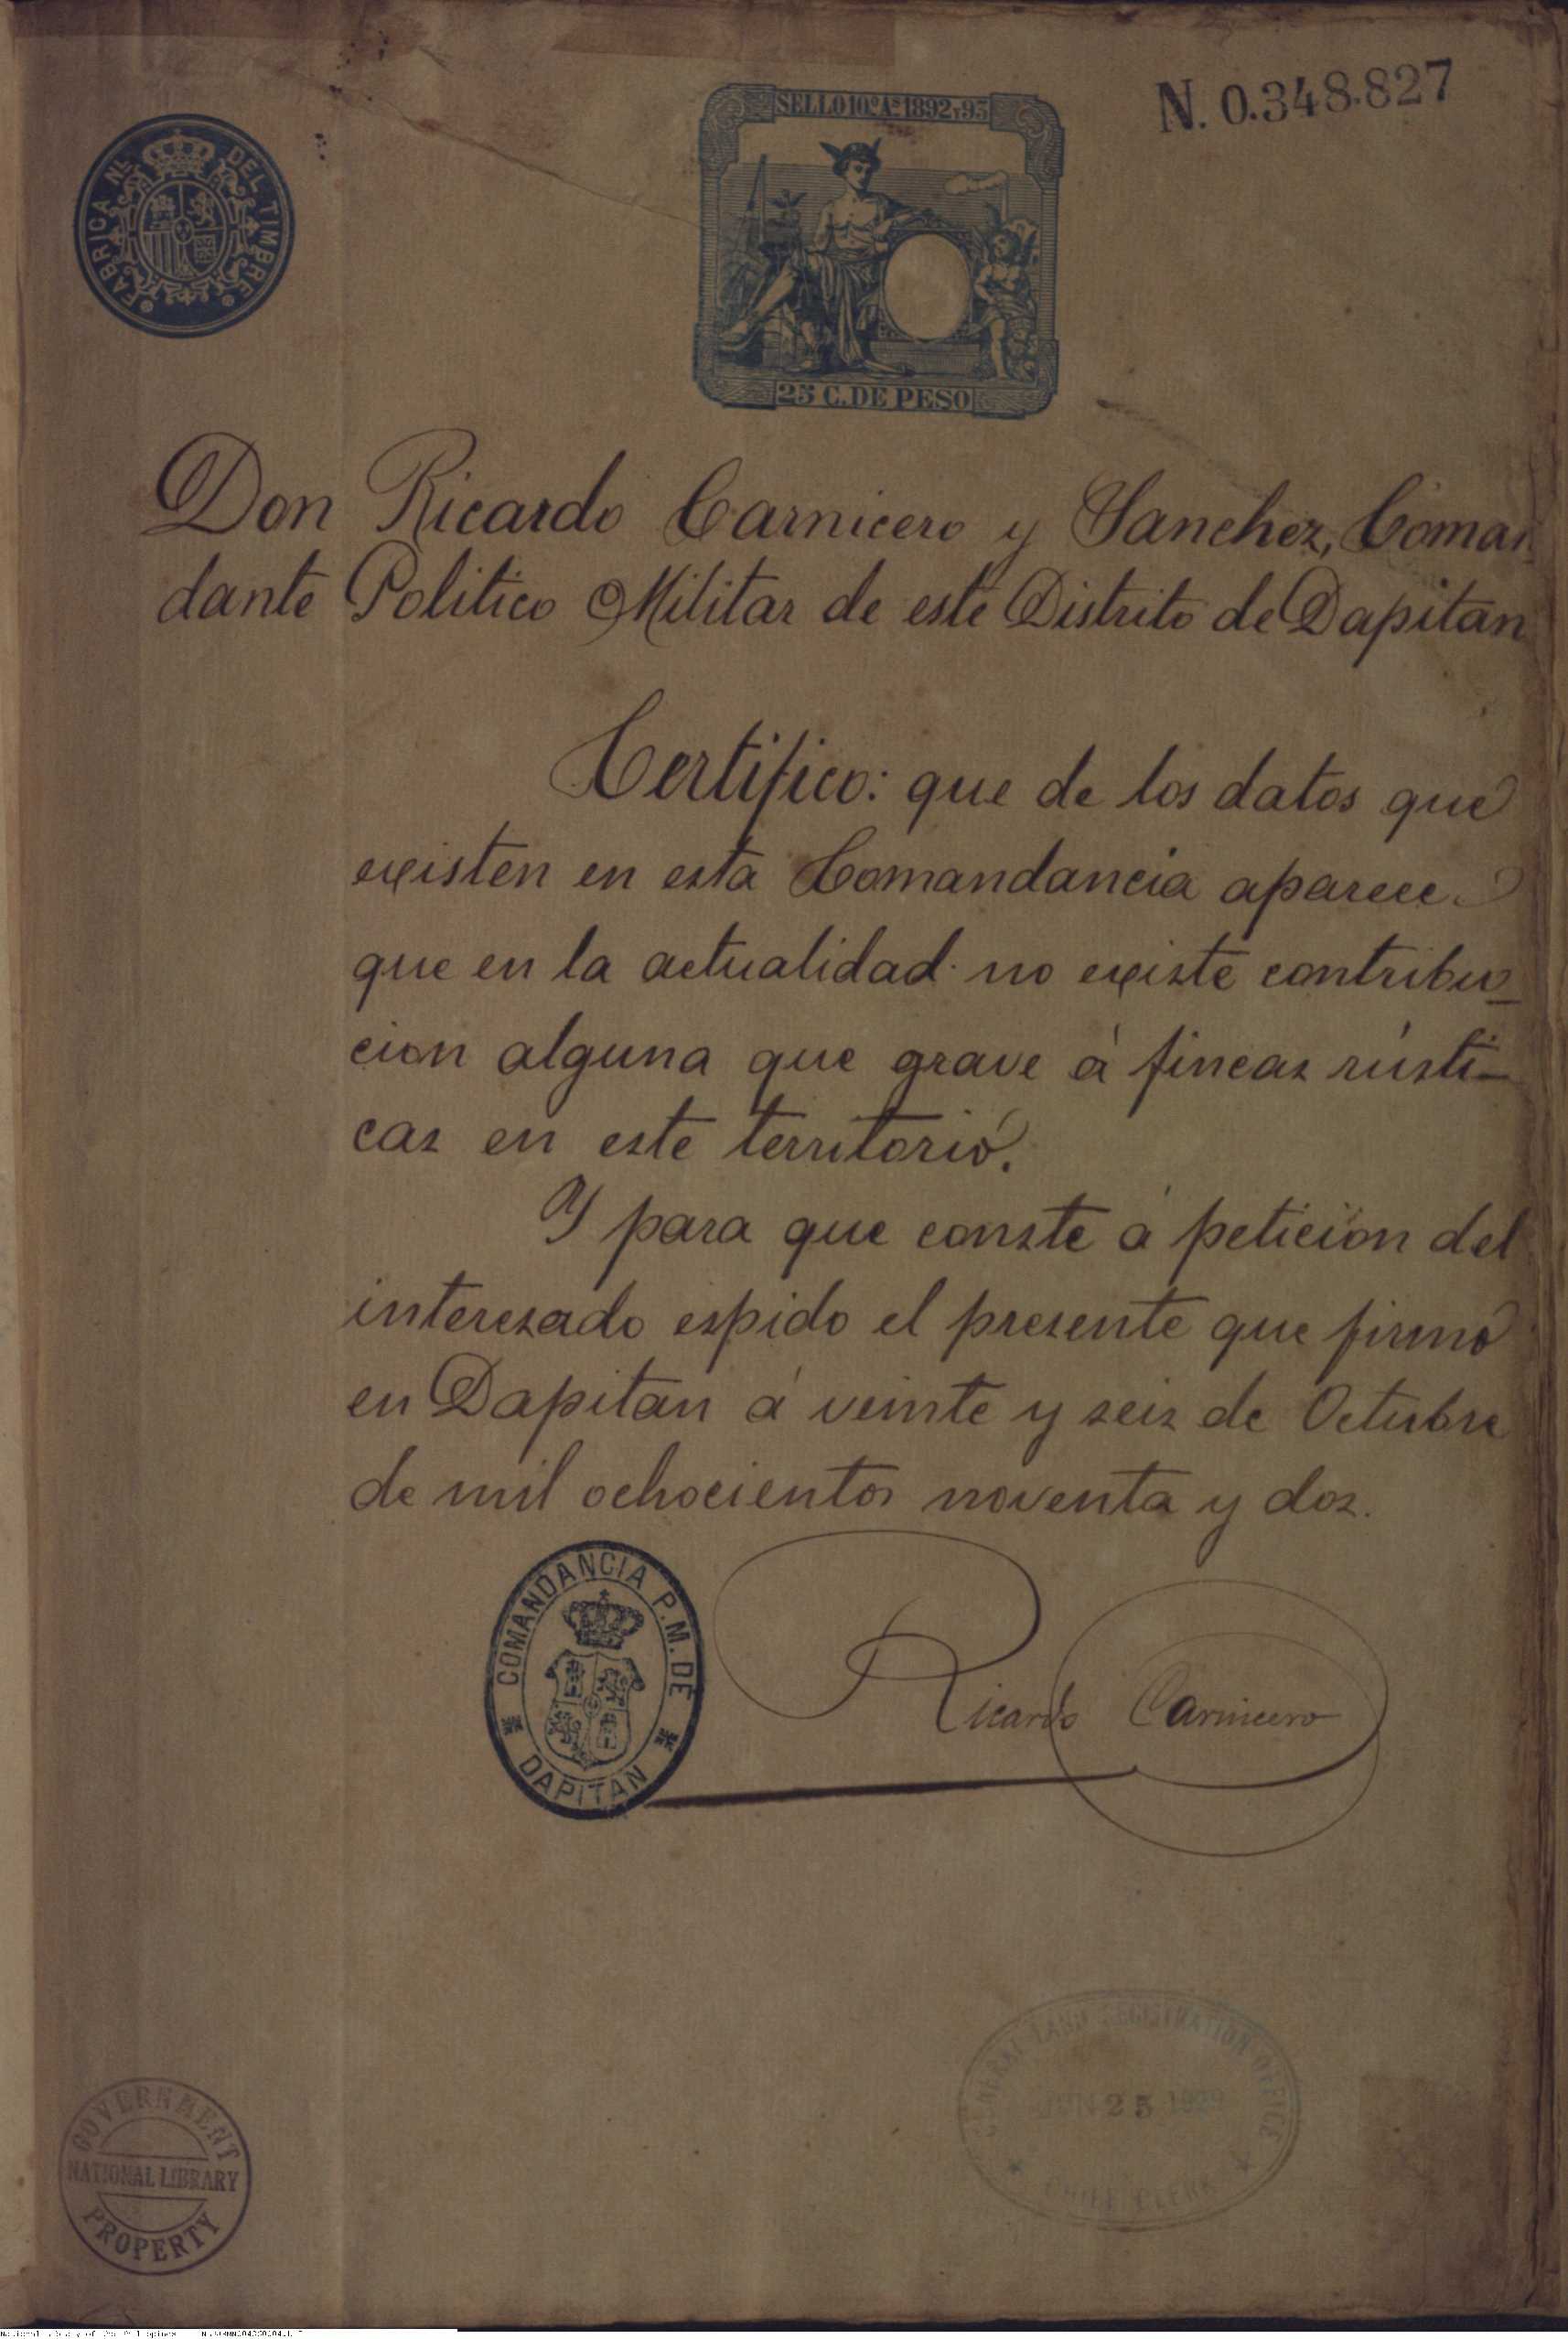 SELLO 10º Aº 1892 Y 93
N. 0.348.827
FABRICA NL DEL TIMBRE
25 C. DE PESO
Don Ricardo Carnicero y Sanchez, Coman
dante Politico Militar de este Distrito de Dapitan
Certifico: que de los datos que
existen en esta Comandancia aparece
que en la actualidad no existe contribu-
cion alguna que grave á fincas rústi-
cas en este territorio.
Y para que conste á peticion del
interesado espido el presente que firmo
en Dapitan á veinte y seis de Octubre
de mil ochocientos noventa y dos.
COMANDANCIA P. M. DE
DAPITAN
Ricardo Carnicero
GENERAL LAND REGISTRATION OFFICE
25
CHIEF CLERK
GOVERNMENT
NATIONAL LIBRARY
PROPERTY
National Library of the Philippines